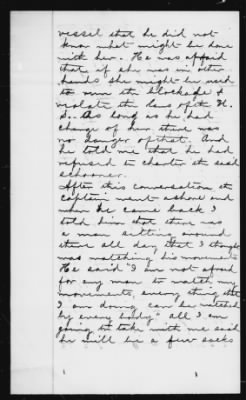 vessel that he did not
know what might be done
with her. He was afraid
that if she was in other
hands she might be used
to run the blockade &
violate the laws of the U.
S. As long as he had
charge of her there was
no danger of that. And
he told me that he had
refused to charter the said
schooner.
After this conversation the
captain went ashore and
when he came back I
told him that there was
a man sitting around
there all day that I thought
was watching his movements
He said "I am not afraid
for any man to watch my
movements, every thing that
I am doing can be watched
by every body" all I am
going to take with me said
he will be a few sacks